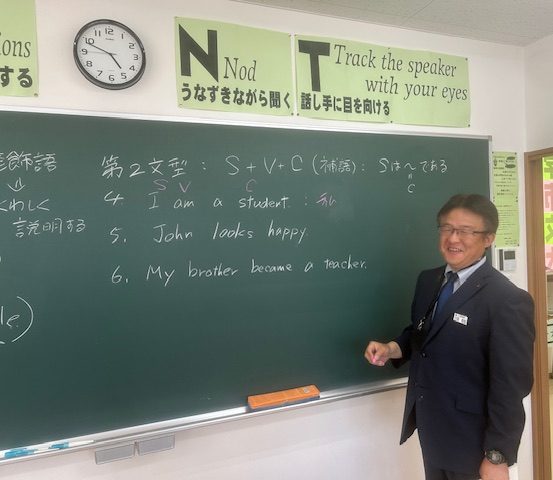 ions
する
N
Nod
うなずきながら聞く
T
Track the speaker
with your eyes
話し手に目を向ける
飾語
くわしく
説明する
第2文型 : S + V + C (補語) : Sは〜である
C
S V C
4. I am a student. : 私
5. John looks happy.
6. My brother became a teacher.